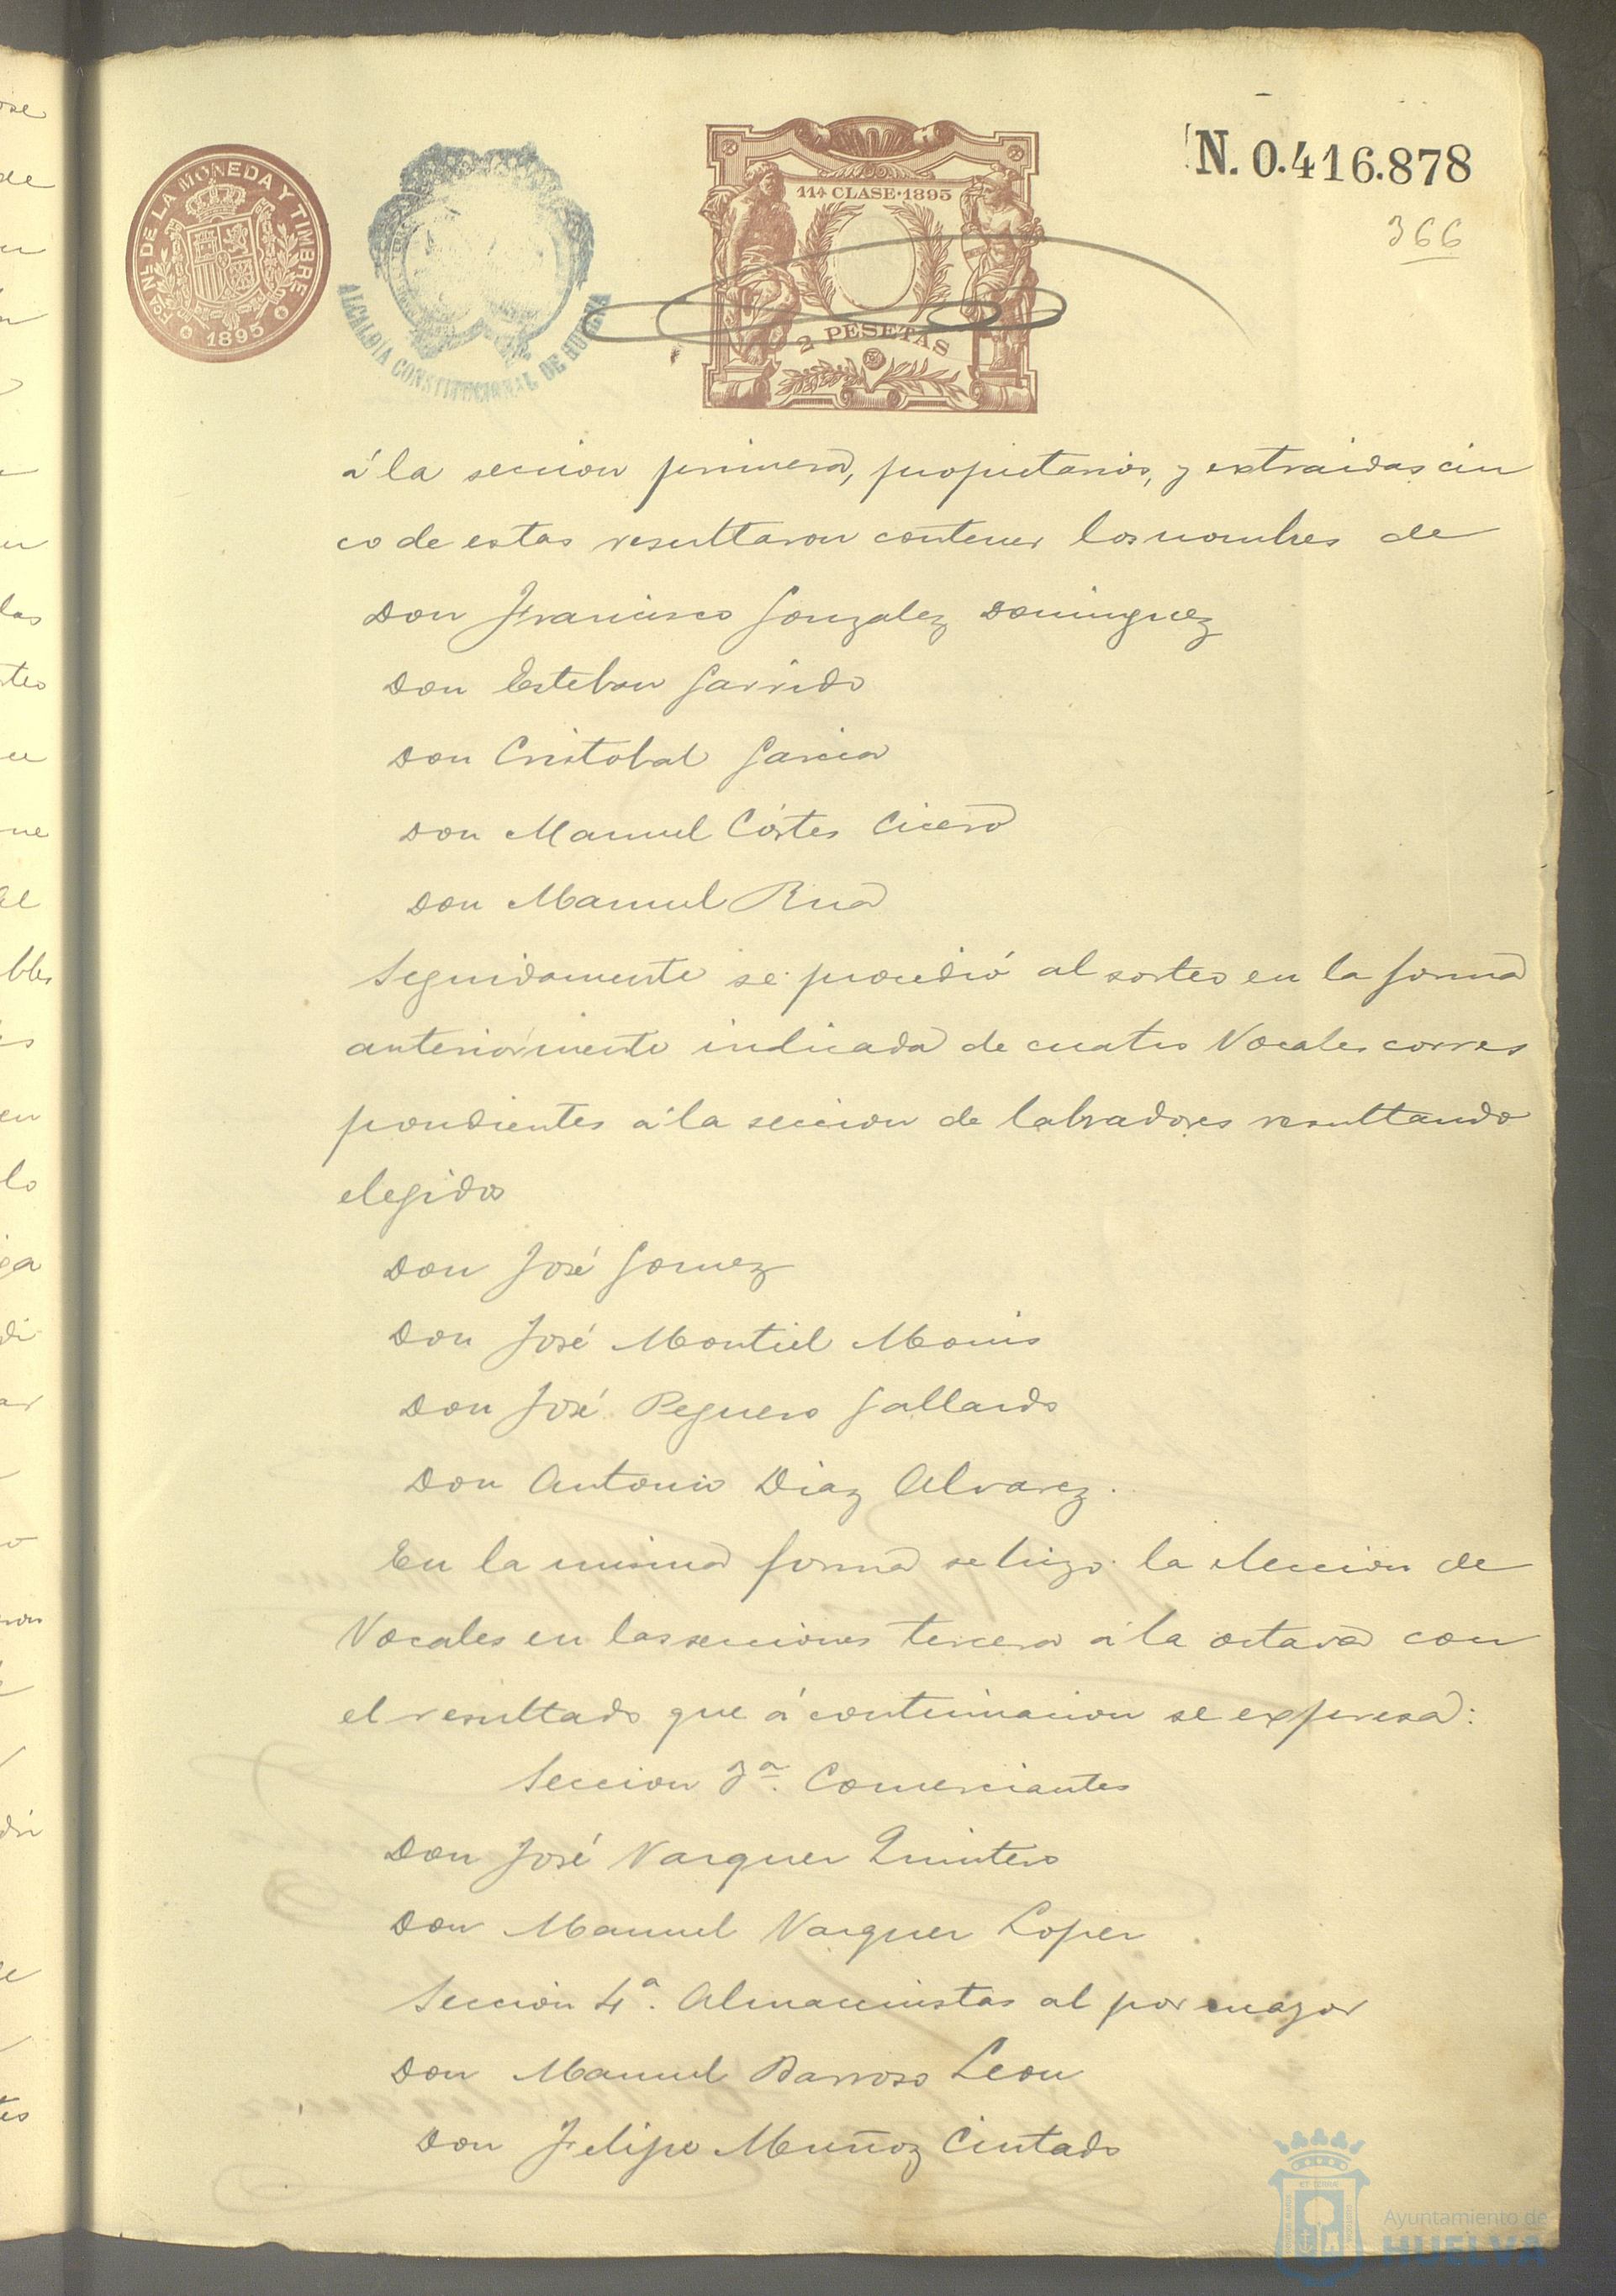 FCA. NL. DE LA MONEDA Y TIMBRE
1895
ALCALDÍA CONSTITUCIONAL DE HUELVA
11ª CLASE·1895
2 PESETAS
N. 0.416.878
366
á la seccion primera, propietarios, y extraidas cin
co de estas resultaron contener los nombres de
Don Francisco Gonzalez Dominguez
Don Esteban Garrido
Don Cristobal Garcia
Don Manuel Córtes Cicero
Don Manuel Rua
Seguidamente se procedió al sorteo en la forma
anteriormente indicada de cuatro Vocales corres
pondientes á la seccion de labradores resultando
elegidos
Don José Gomez
Don José Montiel Monis
Don José Peguero Gallardo
Don Antonio Diaz Alvarez.
En la misma forma se hizo la eleccion de
Vocales en las secciones tercera á la octava con
el resultado que á continuacion se expresa:
Seccion 3ª. Comerciantes
Don José Vazquez Quintero
Don Manuel Vazquez Lopez
Seccion 4ª. Almacenistas al por mayor
Don Manuel Barroso Leon
Don Felipe Muñoz Cintado
Ayuntamiento de
HUELVA